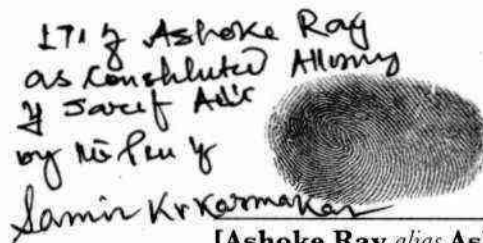 LTI of Ashoke Ray
as Constituted Attorney
of
by the Pen of
Samir Kr Karmakar
[Ashoke Ray alias As